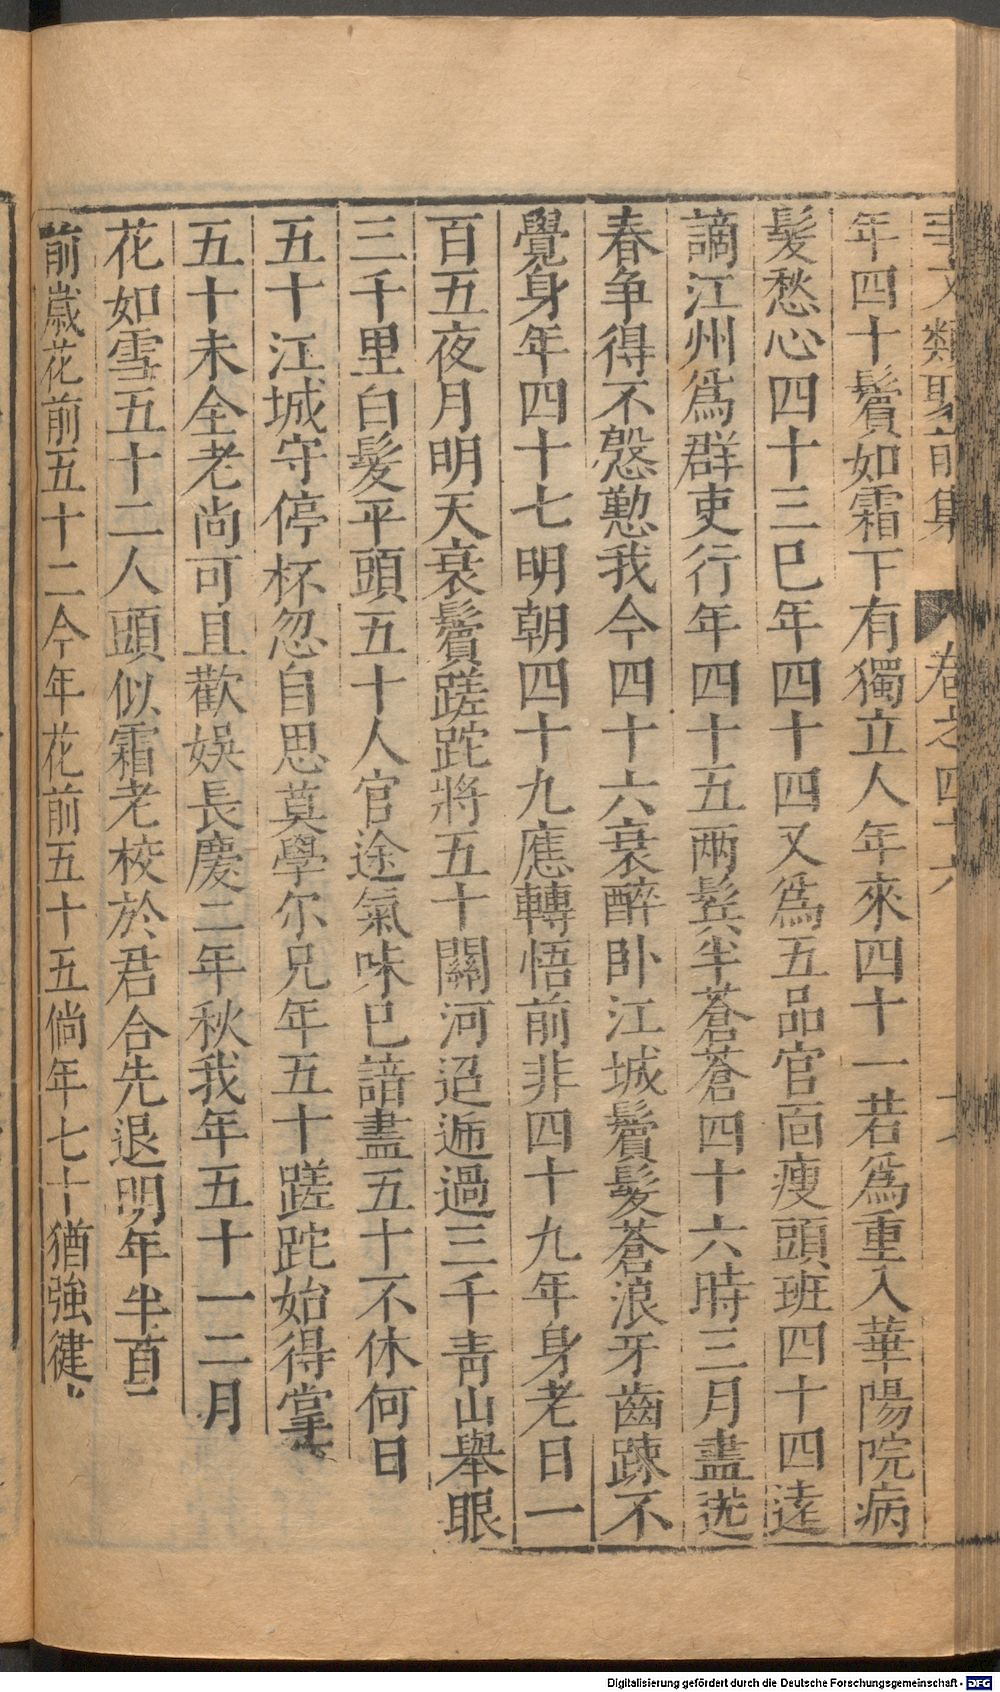 事文類聚前集 卷之四十六
年四十鬢如霜下有獨立人年來四十一若爲重入華陽院病
髮愁心四十三巳年四十四又爲五品官面瘦頭班四十四逺
謫江州爲群吏行年四十五兩鬂半蒼蒼四十六時三月盡送
春争得不慇懃我今四十六衰醉卧江城鬢髮蒼浪牙齒踈不
覺身年四十七明朝四十九應轉悟前非四十九年身老日一
百五夜月明天衰鬢蹉跎將五十關河迢遞過三千青山舉眼
三千里白髮平頭五十人官途氣味巳諳盡五十不休何日
五十江城守停杯忽自思莫學尓兄年五十蹉跎始得掌
五十未全老尚可且歡娱長慶二年秋我年五十一二月
花如雪五十二人頭似霜老校於君合先退明年半百
前歲花前五十二今年花前五十五倘年七十猶強健
Digitalisierung gefördert durch die Deutsche Forschungsgemeinschaft - DFG